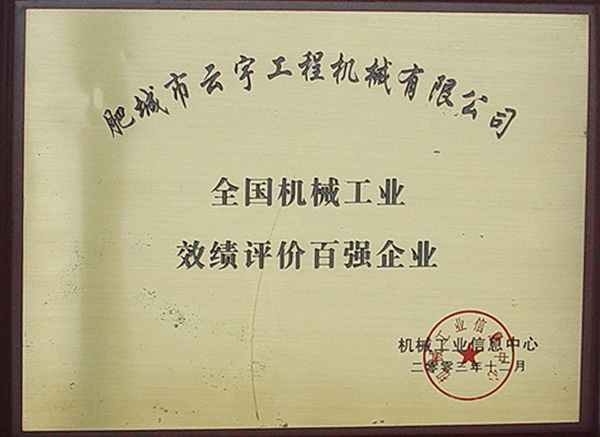 肥城市云宇工程机械有限公司
全国机械工业
效绩评价百强企业
机械工业信息中心
二零零三年十二月
机械工业信息中心